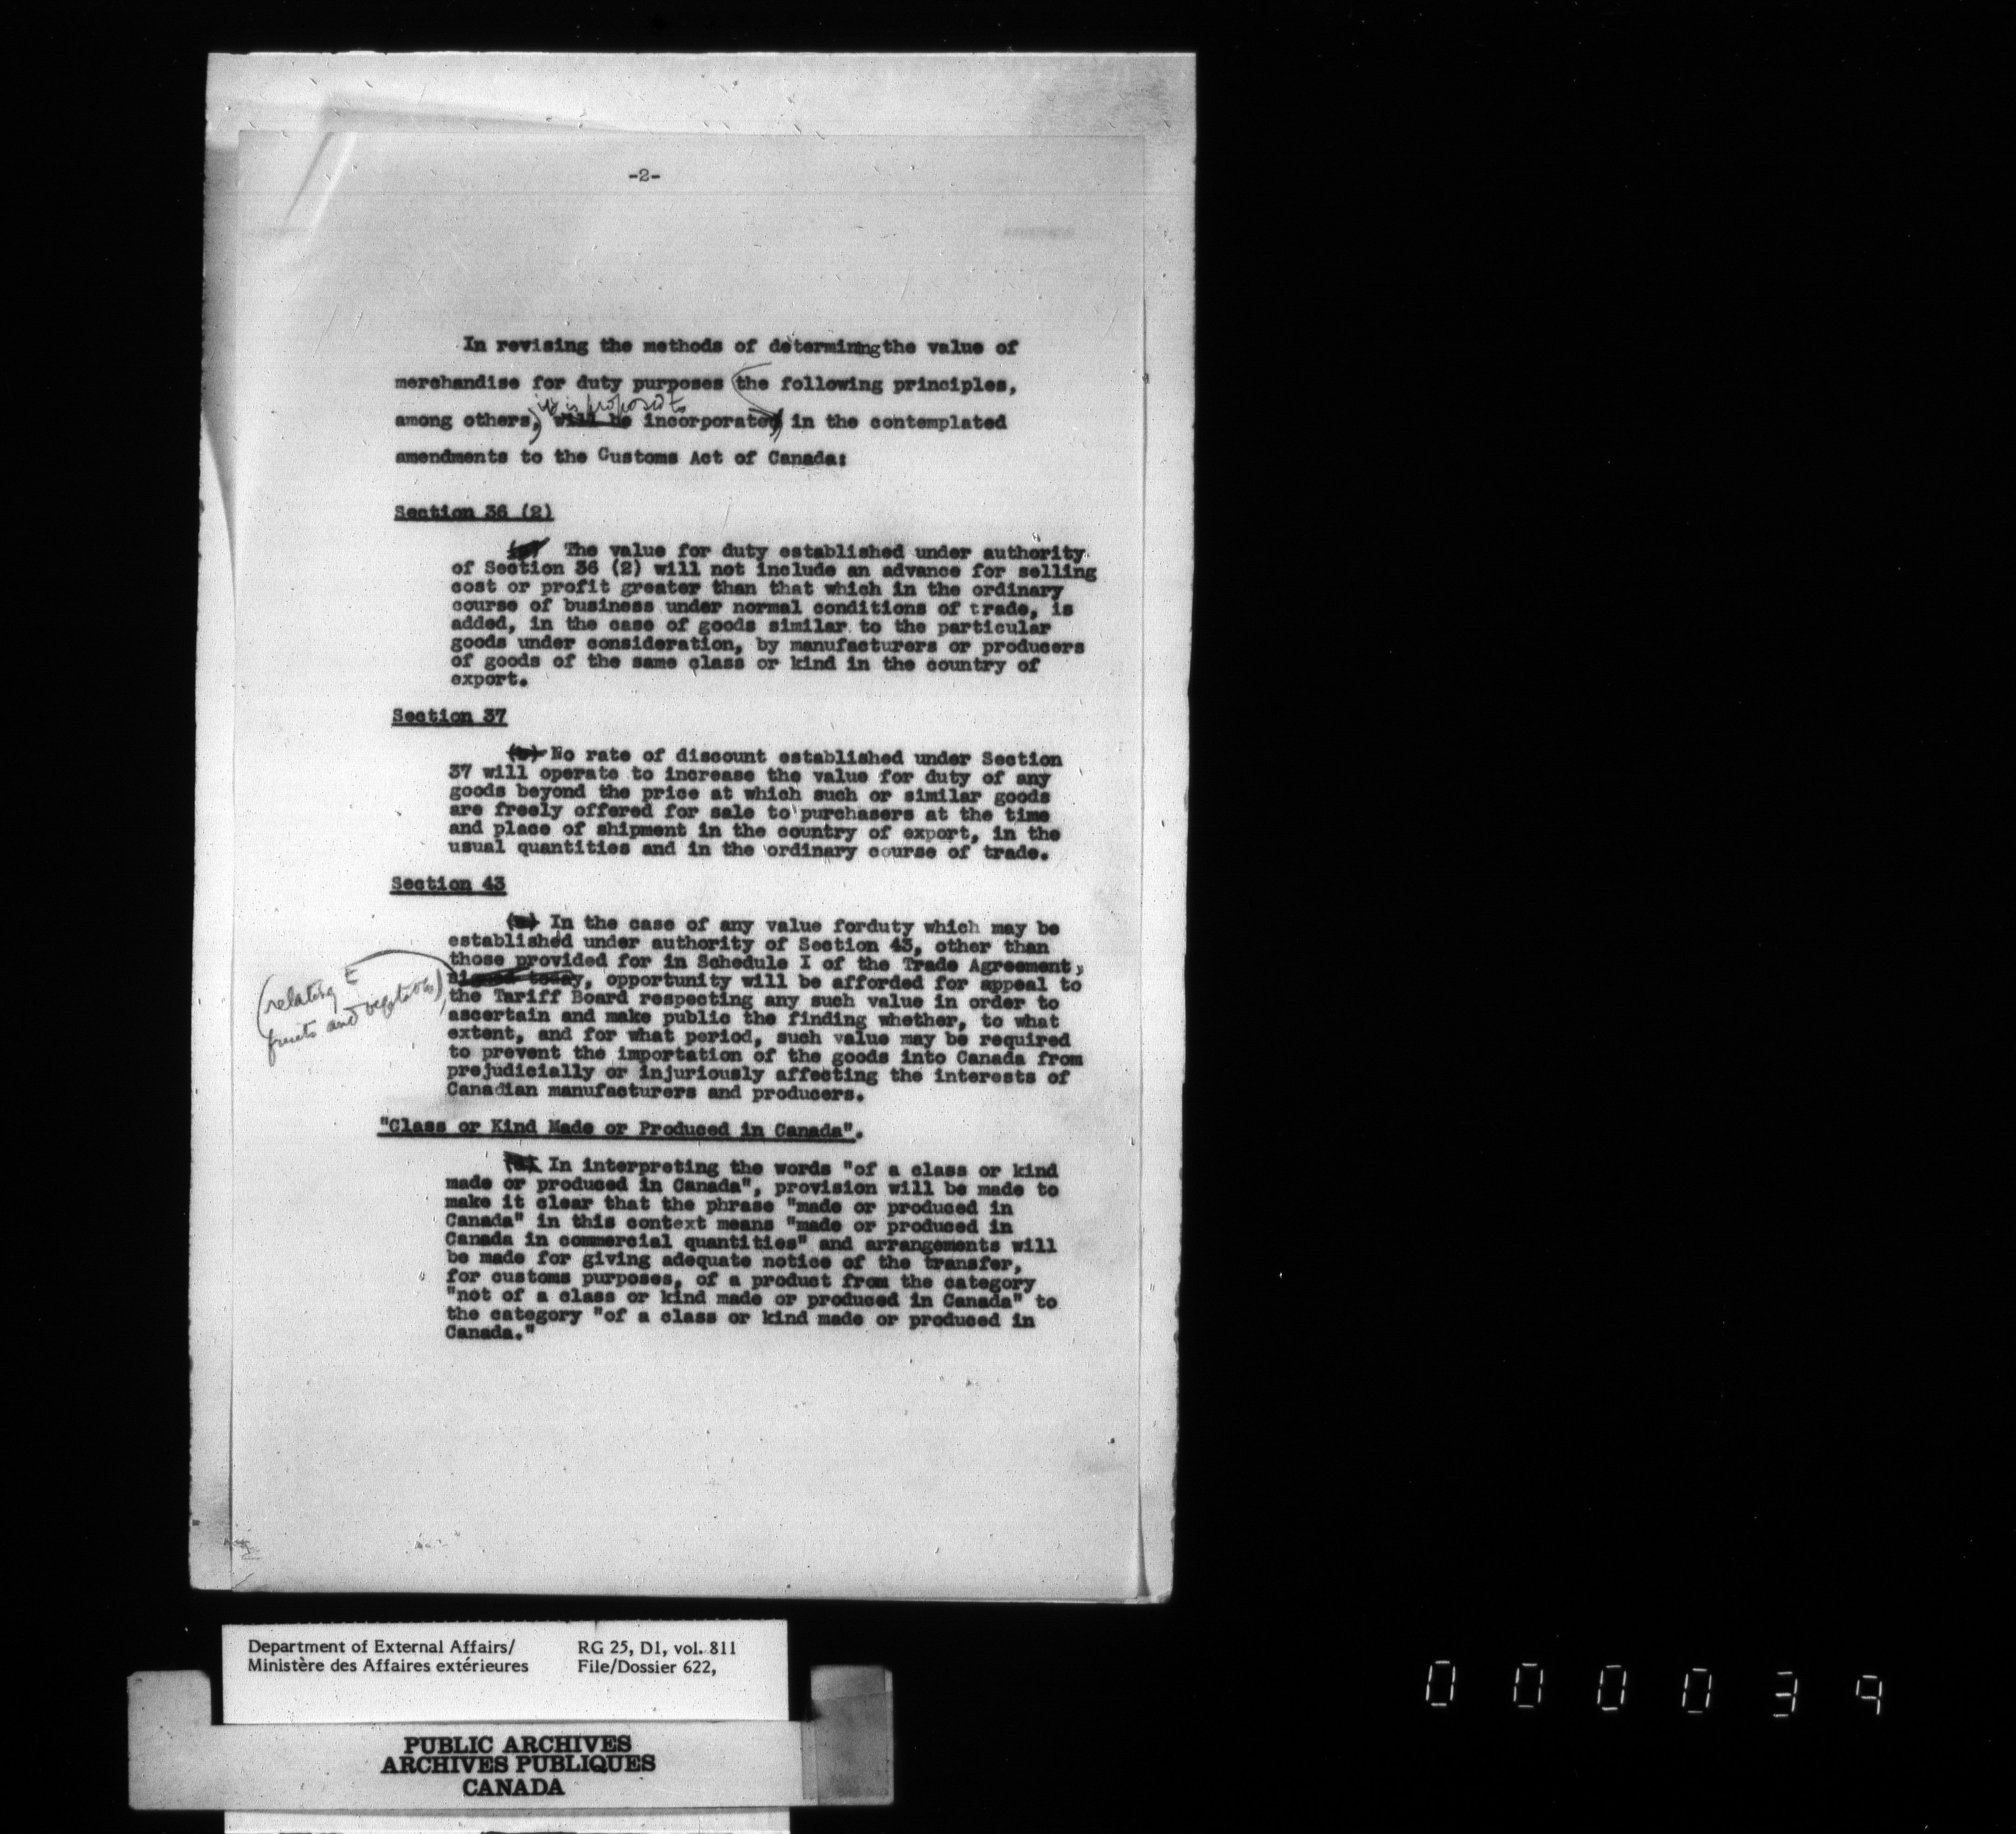 -2-
In revising the methods of determining the value of
merchandise for duty purposes (the following principles,
it is proposed to
among others,) will be incorporated in the contemplated
amendments to the Customs Act of Canada:
Section 36 (2)
The value for duty established under authority
of Section 36 (2) will not include an advance for selling
cost or profit greater than that which in the ordinary
course of business under normal conditions of trade, is
added, in the case of goods similar to the particular
goods under consideration, by manufacturers or producers
of goods of the same class or kind in the country of
export.
Section 37
(b) No rate of discount established under Section
37 will operate to increase the value for duty of any
goods beyond the price at which such or similar goods
are freely offered for sale to purchasers at the time
and place of shipment in the country of export, in the
usual quantities and in the ordinary course of trade.
Section 43
In the case of any value forduty which may be
established under authority of Section 43, other than
those provided for in Schedule I of the Trade Agreement,
(relating to
fruits and vegetables),
signed today, opportunity will be afforded for appeal to
the Tariff Board respecting any such value in order to
ascertain and make public the finding whether, to what
extent, and for what period, such value may be required
to prevent the importation of the goods into Canada from
prejudicially or injuriously affecting the interests of
Canadian manufacturers and producers.
"Class or Kind Made or Produced in Canada".
In interpreting the words "of a class or kind
made or produced in Canada", provision will be made to
make it clear that the phrase "made or produced in
Canada" in this context means "made or produced in
Canada in commercial quantities" and arrangements will
be made for giving adequate notice of the transfer,
for customs purposes, of a product from the category
"not of a class or kind made or produced in Canada" to
the category "of a class or kind made or produced in
Canada."
Department of External Affairs/ RG 25, D1, vol. 811
Ministère des Affaires extérieures File/Dossier 622,
PUBLIC ARCHIVES
ARCHIVES PUBLIQUES
CANADA
000039